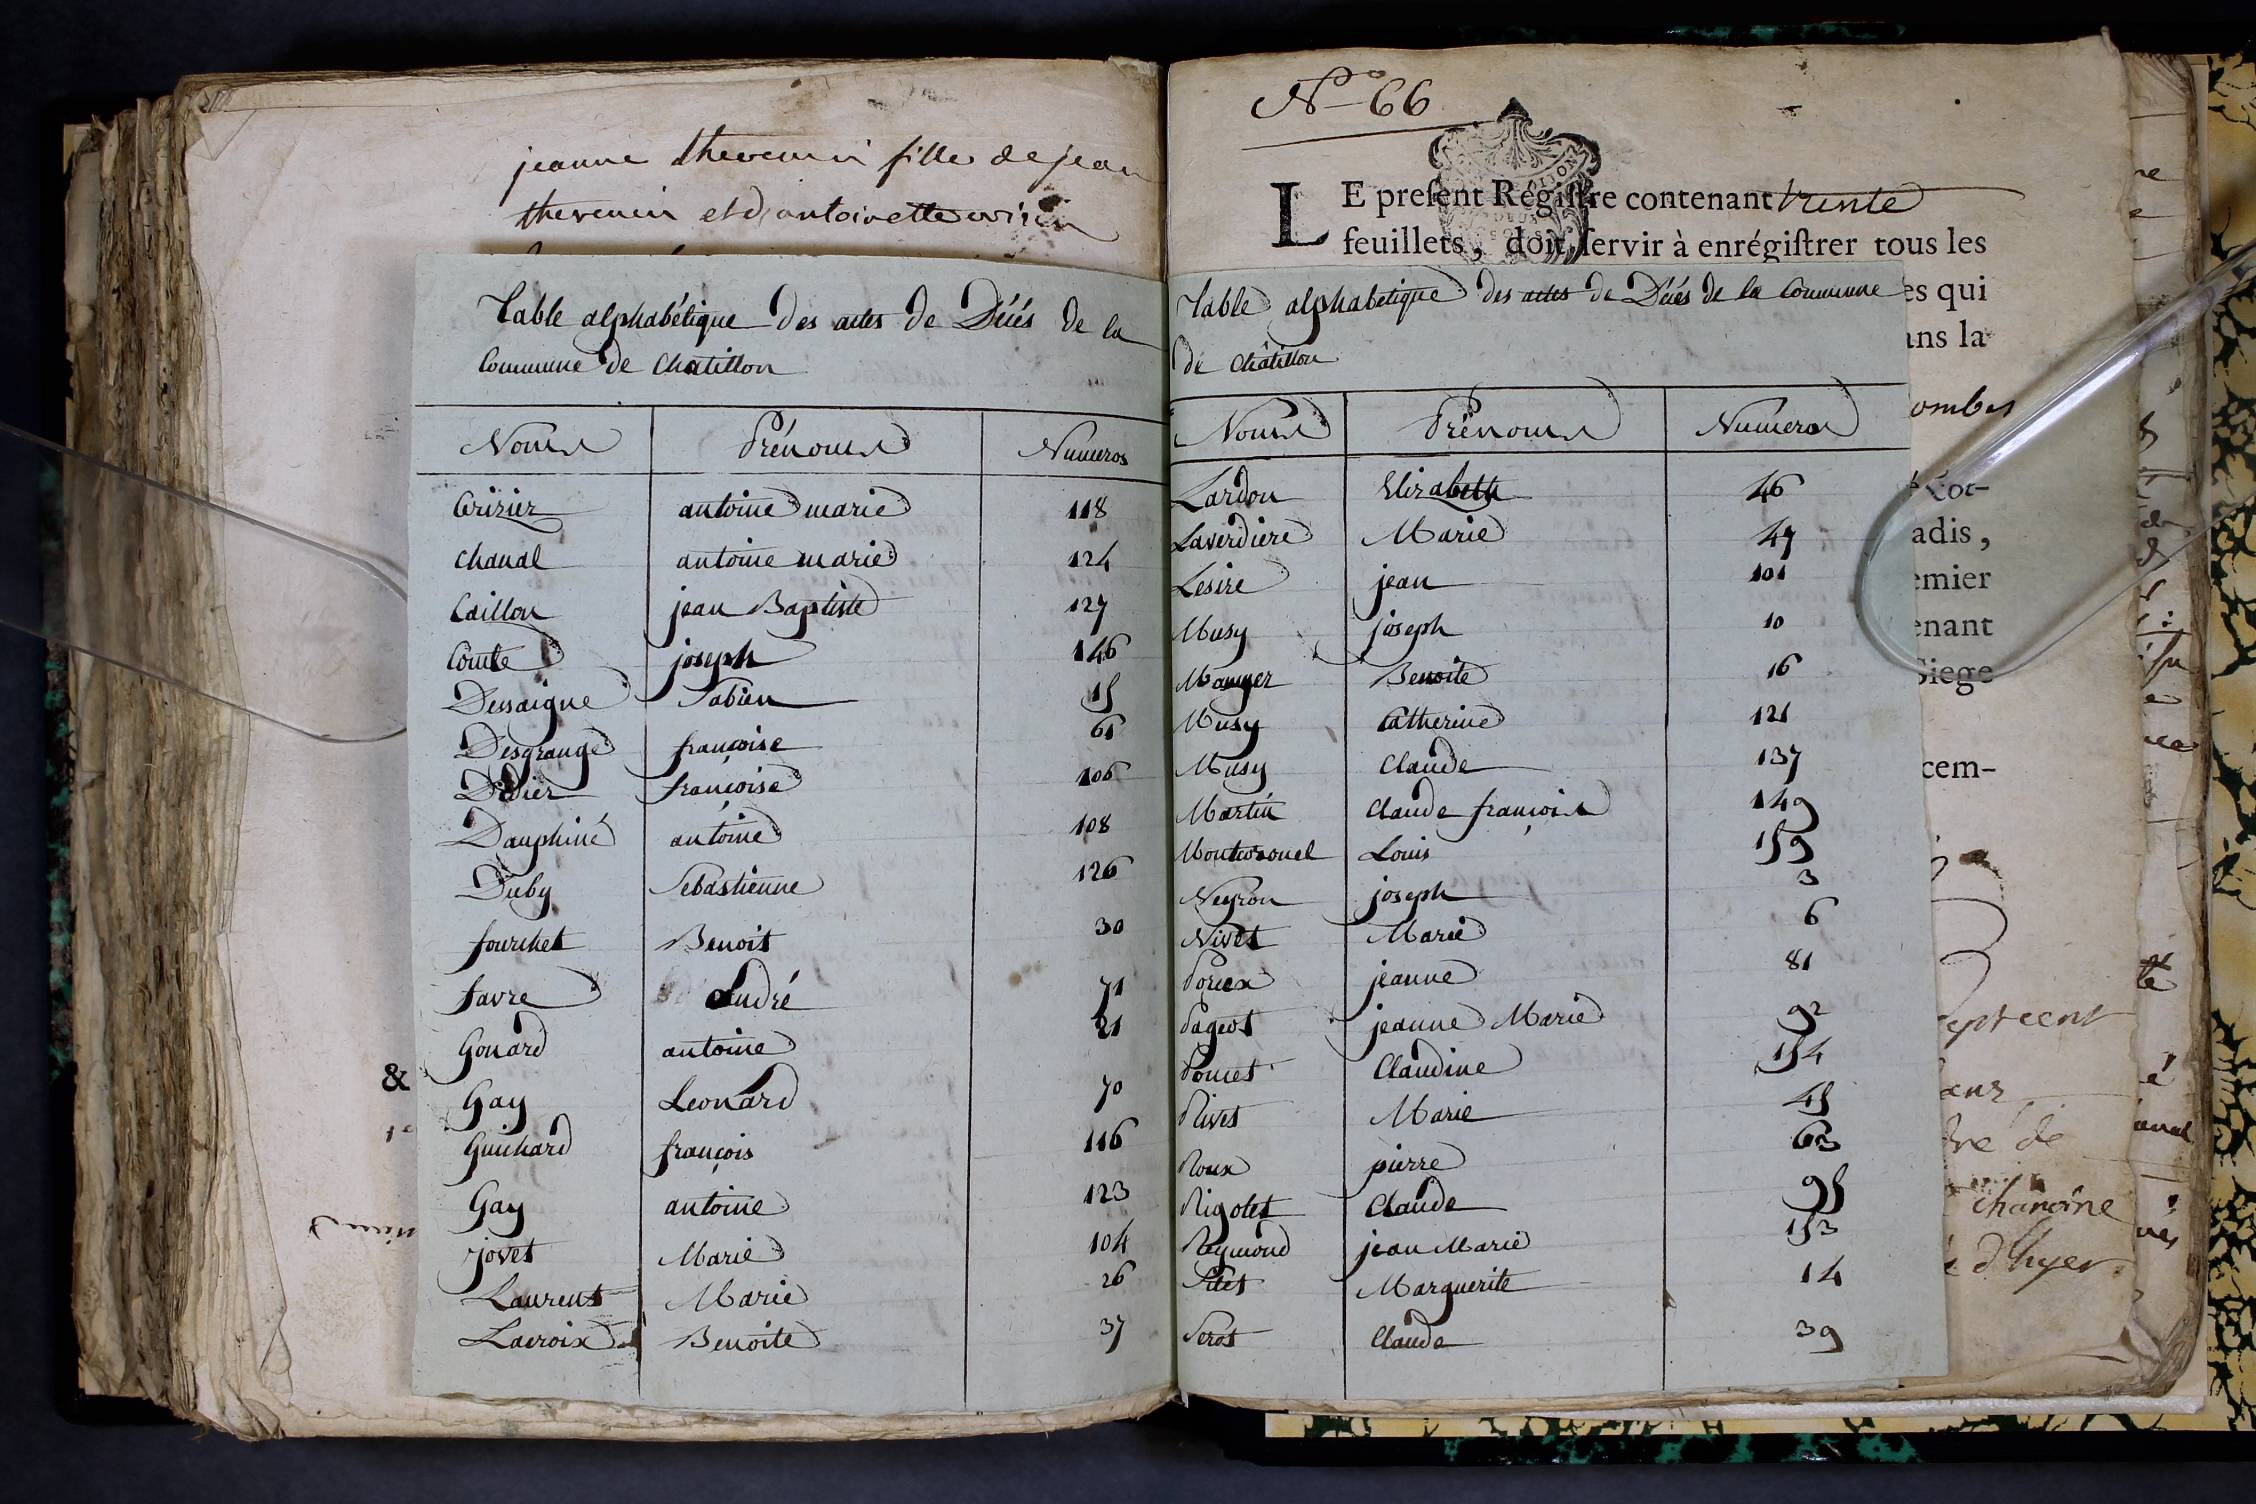 jeanne thevenin fille de jean
thevenin et d, antoinette
Table alphabétique des actes de Décés de la
Commune de Chatillon
Noms Prénoms Numeros
Cerizier antoine marie 118
Chanal antoine marie 124
Caillon jean Baptiste 127
Comte joseph 146
Dessaigne Fabien 15
Desgrange françoise 61
Didier françoise 106
Dauphiné antoine 108
Duby Sebastienne 126
fourchet Benoit 30
favre André 71
Gonard antoine 21
Gay Leonard 70
Guichard françois 116
Gay antoine 123
jovet Marie 104
Laurent Marie 26
Lacroix Benoite 37
&
N° 66
LE present Régistre contenant trente
feuillets, doit servir à enrégistrer tous les
es qui
ans la
ombes
Cot-
adis,
emier
enant
Siege
cem-
Table alphabétique des actes de Décés de la Commune
de Châtillon
Noms Prénoms Numeros
Lardon Elizabeth 46
Laverdiere Marie 47
Lesire jean 101
Musy joseph 10
Manger Benoite 16
Musy Catherine 121
Musy Claude 137
Martin Claude françois 149
Louis 159
Neyron joseph 3
Nivet Marie 6
jeanne 81
Pageot jeanne Marie 92
Poncet Claudine 154
Rivet Marie 45
Roux pierre 63
Rigolet Claude 95
Raymond jean Marie 153
Marguerite 14
Serot Claude 39
septcent
dre de
chanoine
d'hyer